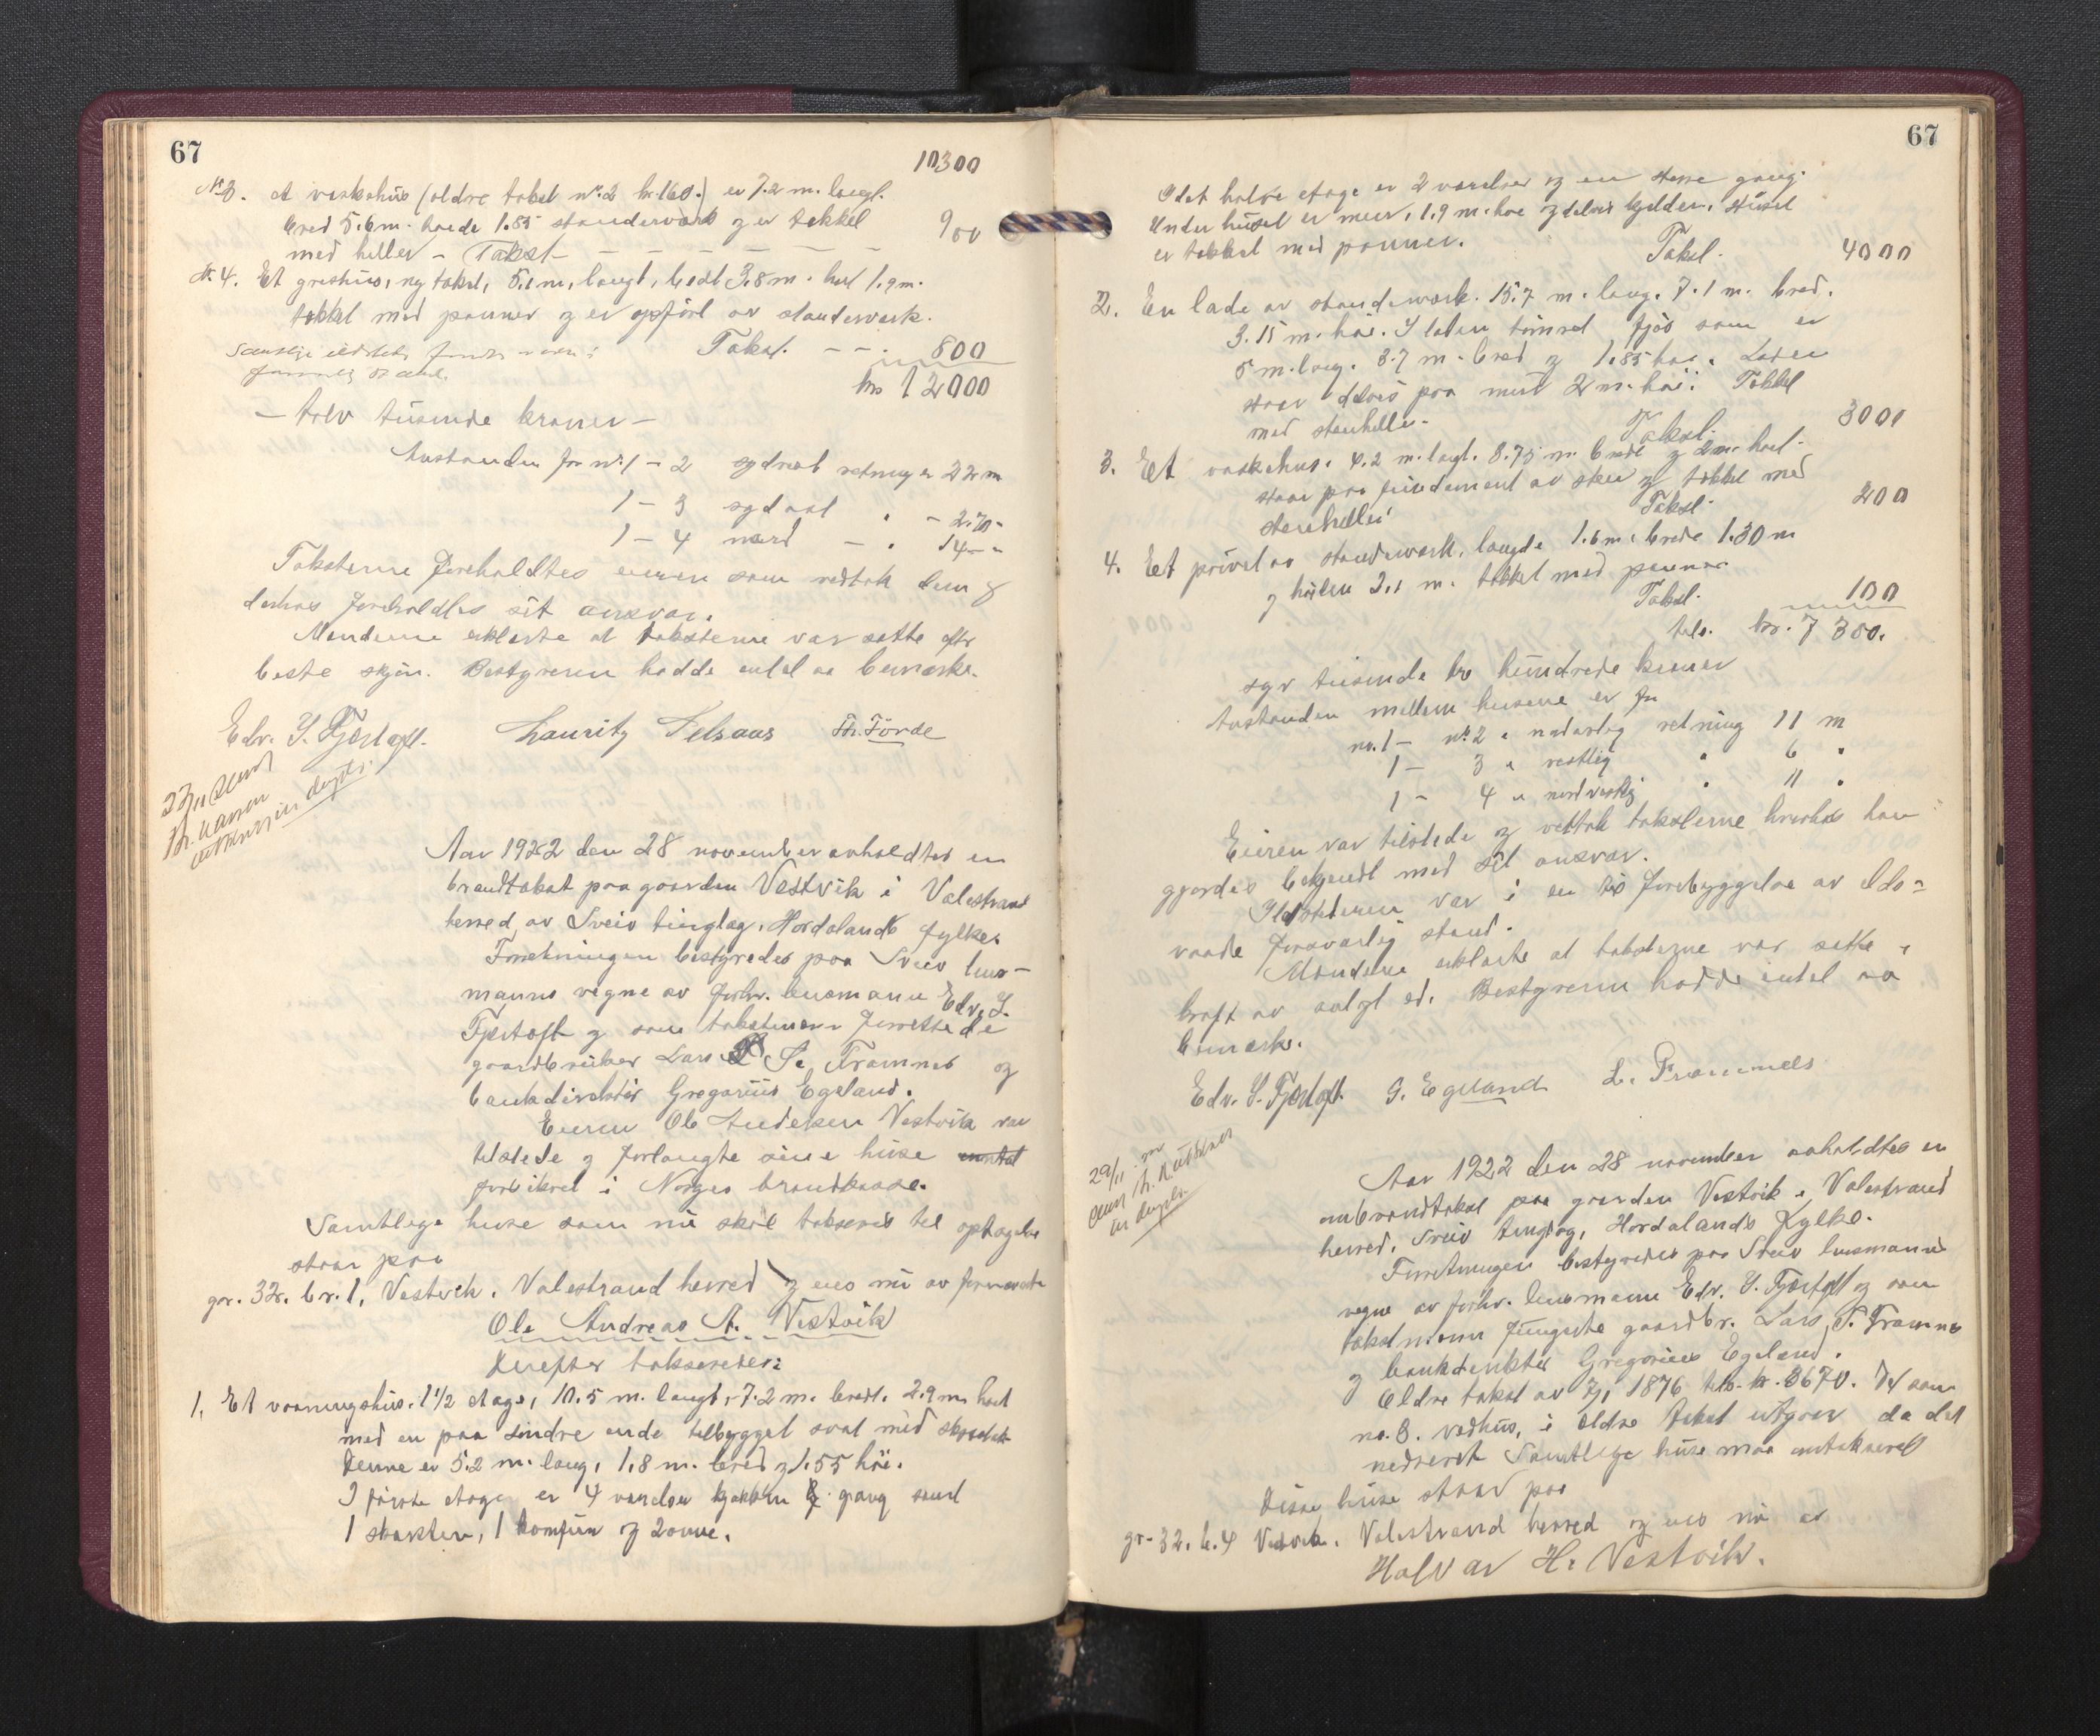 67
10300
Nr 3. et vaskehus (ældre takst nr. 2 kr. 160.) er 7.2 m. langt.
bred 5.6 m. høide 1.85 standerverk og er tekket
med heller - Takst - 900
Nr. 4. Et grishus, ny takst, 5.1 m. langt, bredt 3.8 m. høit 1.9 m.
tekket med panner og er opført av standerverk.
Takst. - - . 800
kr 12000
- tolv tusinde kroner -
Avstanden fra nr. 1 - 2 sydvest retning er 22 m
1 - 3 sydost " - 2.70 -
1 - 4 nord - " 14 - "
Taksterne foreholdtes eieren som vedtok dem og
derhos foreholdtes sit ansvar.
Mændene erklærte at taksterne var satte efter
beste skjøn. Bestyreren hadde intet at bemerke.
Edv. S. Fjørtoft. Lauritz Felsaas Th. Førde
Aar 1922 den 28 november avholdtes en
brandtakst paa gaarden Vestvik i Valestrand
herred, av Sveio tinglag, Hordalands fylke.
Forretningen bestyredes paa Sveio lens-
manns vegne av forhv. lensmann Edv. S.
Fjørtoft og som takstmænn forrettede
gaardbruker Lars S. Framnes og
bankdirektør Gregorius Egeland.
Eieren Ole Andreas Vestvik var
tilstede og forlangte sine huse
forsikret i Norges brandkasse.
Samtlige huse som nu skal takseres til optagelse
staar paa
gnr. 32. br. 1, Vestvik, Valestrand herred og eies nu av fornævnte
Ole Andreas A. Vestvik
Derefter takseredes:
1. Et vaaningshus. 1½ etage, 10.5 m. langt, 7.2 m. bredt. 2.9 m. høit
med en paa søndre ende tilbygget sval med skraatak
Denne er 5.2 m. lang, 1.8 m. bred og 1.55 høi.
I første etage er 4 værelser kjøkken & gang samt
1 skorsten, 1 komfur og 2 ovne.
67
I det halve etage er 2 værelser og en større gang.
Under huset er mur, 1.9 m. høi og delvis kjelder. Huset
er tekket med panner. Takst. 4000
2. En lade av standerverk. 15.7 m. lang. 7.1 m. bred.
3.15 m. høi. I laden tømret fjøs som er
5 m. lang. 3.7 m. bred og 1.85 høi. Laden
staar delvis paa mur 2 m. høi. Tekket
med stenheller. Takst. 3000
3. Et vaskehus. 4.2 m. langt. 3.75 m. bredt og 2 m. høit.
staar paa fundament av sten og tekket med
stenheller Takst. 200
4. Et privet av standerverk, længde 1.6 m. brede 1.30 m
og høiden 2.1 m. tekket med panner
Takst. 100
tils. kr. 7300.
syv tusinde tre hundrede kroner
Avstanden mellem husene er fra
nr. 1 - nr. 2 i nordostlig retning 11 m
1 - 3 " vestlig " 6 "
1 - 4 " nordvestlig " 11 "
Eieren var tilstede og vedtok taksterne hvorhos han
gjordes bekjendt med sit ansvar.
Ildstederne var i en til forebyggelse av ilds-
vaade forsvarlig stand.
Mændene erklærte at taksterne var satte i
kraft av avlagt ed. Bestyreren hadde intet at
bemerke.
Edv. S. Fjørtoft. G. Egeland L. Frammes
Aar 1922 den 28 november avholdtes en
ombrandtakst paa gaarden Vestvik i Valestrand
herred, Sveio tinglag, Hordalands fylke.
Forretningen bestyredes paa Sveio lensmanns
vegne av forhv. lensmann Edv. S. Fjørtoft og som
takstmænn fungerte gaardbr. Lars S. Framnes
og bankdirektør Gregorius Egeland.
Ældre takst av 1876 tils. kr. 3670.
nr. 3. vedhus, i ældre takst utgaar da det
nedrevet Samtlige huse maa omtakseres
Disse huse staar paa
gr. 32. b. 4 Vestvik. Valestrand herred og eies nu av
Halvar H. Vestvik.